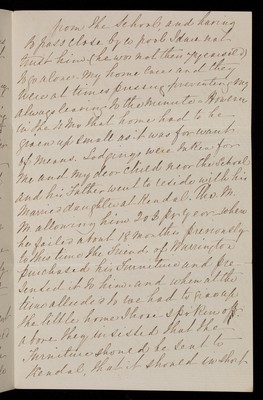 from the School and having
to pass close by a pool I dare not
trust him (he was not then recovered)
to go alone. My home cares and they
were at times pressing preventing my
always leaving to the minute. However
in the that home had to be
given up small as it was for want
of means. Lodgings were taken for
me and my dear child near the School
and his Father went to reside with his
Married daughter at Kendal. Thos. M.
M allowing him 20£ pr yr or when
he failed about 18 months previously
to this time the Friends of Warrington
purchased his Furniture and pre-
sented it to him and when at the
time alluded to we had to give up
the little home I have spoken of
above they insisted that the
Furniture should be sent to
Kendal, that it should in short